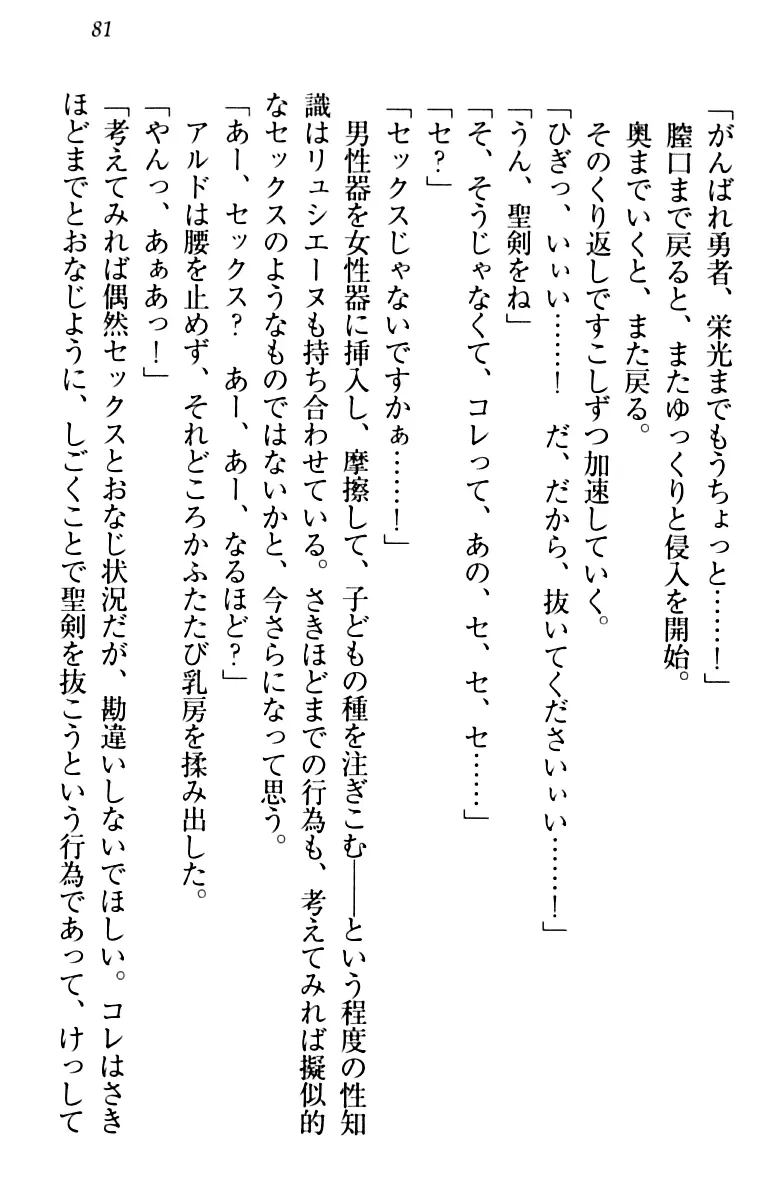 81
「がんばれ勇者、栄光までもうちょっと……！」
膣口まで戻ると、またゆっくりと侵入を開始。
奥までいくと、また戻る。
そのくり返しですこしずつ加速していく。
「ひぎっ、いぃい……！　だ、だから、抜いてくださいぃい……！」
「うん、聖剣をね」
「そ、そうじゃなくて、コレって、あの、セ、セ、セ……」
「セ？」
「セックスじゃないですかぁ……！」
男性器を女性器に挿入し、摩擦して、子どもの種を注ぎこむ――という程度の性知
識はリュシエーヌも持ち合わせている。さきほどまでの行為も、考えてみれば擬似的
なセックスのようなものではないかと、今さらになって思う。
「あー、セックス？　あー、あー、なるほど？」
アルドは腰を止めず、それどころかふたたび乳房を揉み出した。
「やんっ、あぁあっ！」
「考えてみれば偶然セックスとおなじ状況だが、勘違いしないでほしい。コレはさき
ほどまでとおなじように、しごくことで聖剣を抜こうという行為であって、けっして